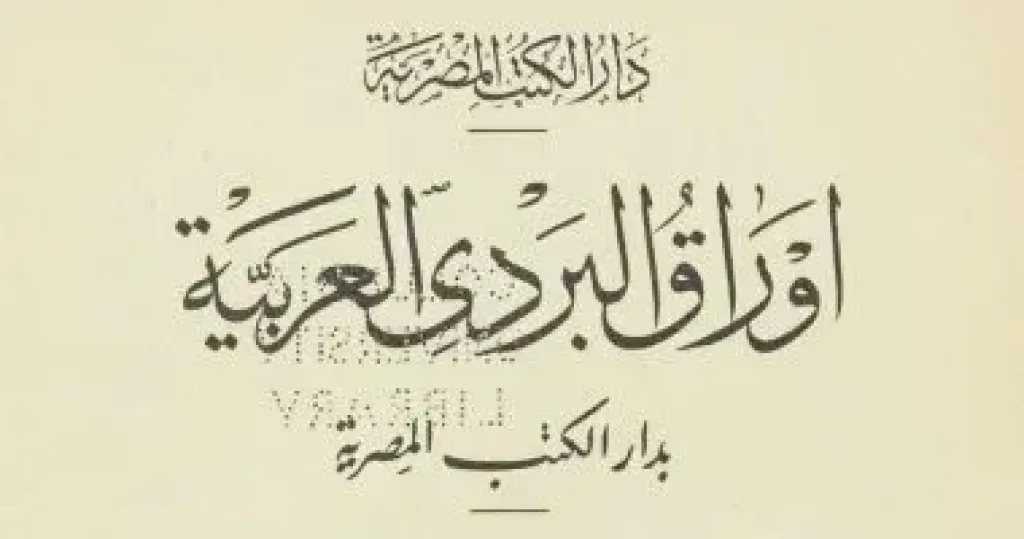 دار الكتب المصرية
أوراق البردي العربية
بدار الكتب المصرية
LIBRARY